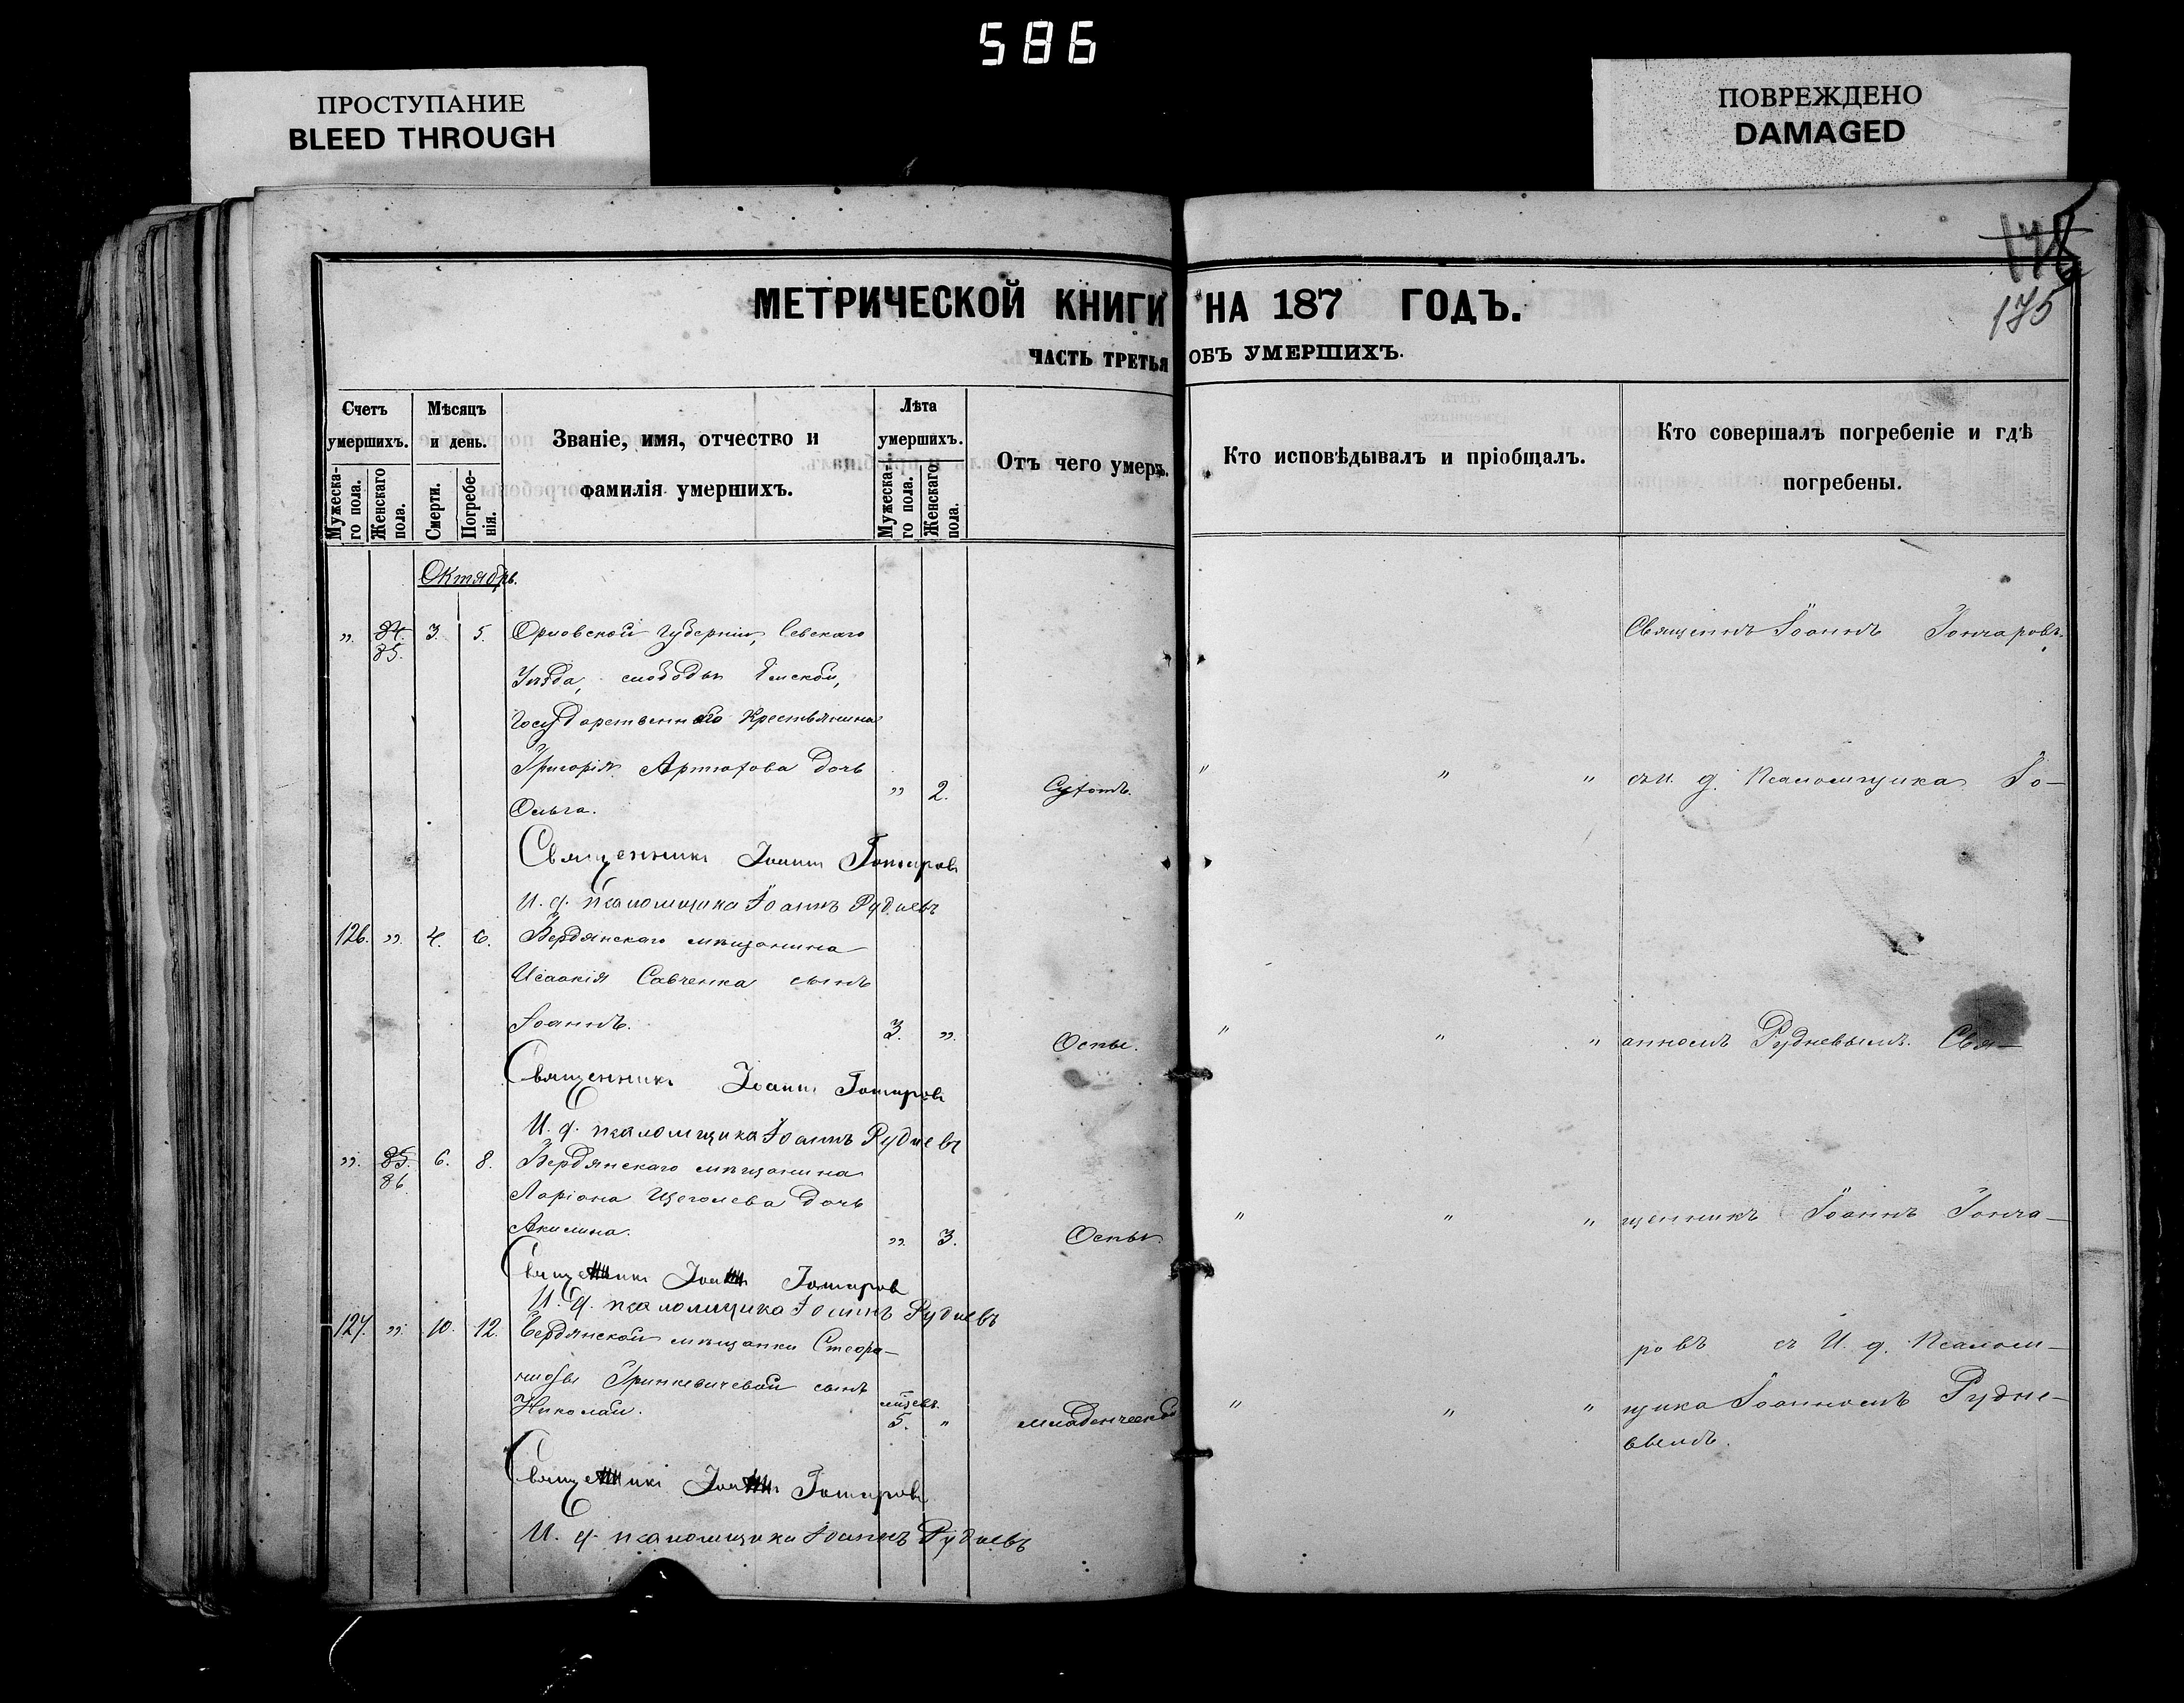 586
ПРОСТУПАНИЕ
BLEED THROUGH
ПОВРЕЖДЕНО
DAMAGED
175
МЕТРИЧЕСКОЙ КНИГИ НА 187 ГОДЪ.
ЧАСТЬ ТРЕТЬЯ ОБЪ УМЕРШИХЪ.
Счетъ умершихъ.
Мужеска-го пола.
Женскаго пола.
Мѣсяцъ и день.
Смерти.
Погребе-нія.
Званіе, имя, отчество и
фамилія умершихъ.
Лѣта умершихъ.
Мужеска-го пола.
Женскаго пола.
Отъ чего умеръ.
Кто исповѣдывалъ и пріобщалъ.
Кто совершалъ погребеніе и гдѣ
погребены.
Октябрь.
„ 84. 3. 5. Орловской губерніи, Севскаго Священнъ Іоаннъ Гончаровъ
85.
Уѣзда, слободы Ямской,
Государственнаго Крестьянина
Григорія дочь
Ольга. „ 2. " " " съ И. д. Псаломщика Іо-
Священникъ Іоаннъ Гончаровъ
И. д. псаломщика Іоаннъ Рудневъ
126. „ 4. 6. Бердянскаго мѣщанина
Исаакія Савченка сынъ
Іоаннъ. 3. „ Оспы. " " " анномъ Рудневымъ. Свя-
Священникъ Іоаннъ Гончаровъ
И. д. псаломщика Іоаннъ Рудневъ
„ 85. 6. 8. Бердянскаго мѣщанина
86.
Ларіона Щеголева дочь
Акилина. „ 3. Оспы. " " " щенникъ Іоаннъ Гонча-
Священникъ Іоаннъ Гончаровъ
И. д. псаломщика Іоаннъ Рудневъ
127. „ 10. 12. Бердянской мѣщанки Стефа- ровъ съ И. д. Псалом-
ниды Гринкевичевой сынъ
Николай. мѣсяц. 5. " младенческой " " " щика Іоанномъ Рудне-
вымъ.
Священникъ Іоаннъ Гончаровъ
И. д. псаломщика Іоаннъ Рудневъ